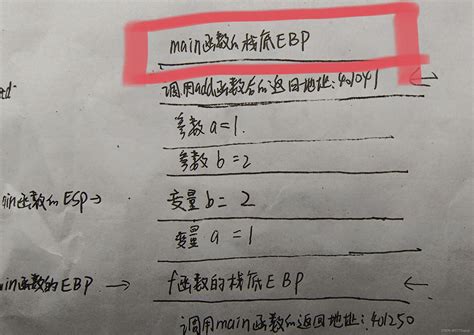 main函数的栈底EBP
调用add函数后的返回地址:401041
参数a=1.
参数b=2
main函数的ESP→ 变量b=2
变量a=1
main函数的EBP→ f函数的栈底EBP
调用main函数的返回地址:401250